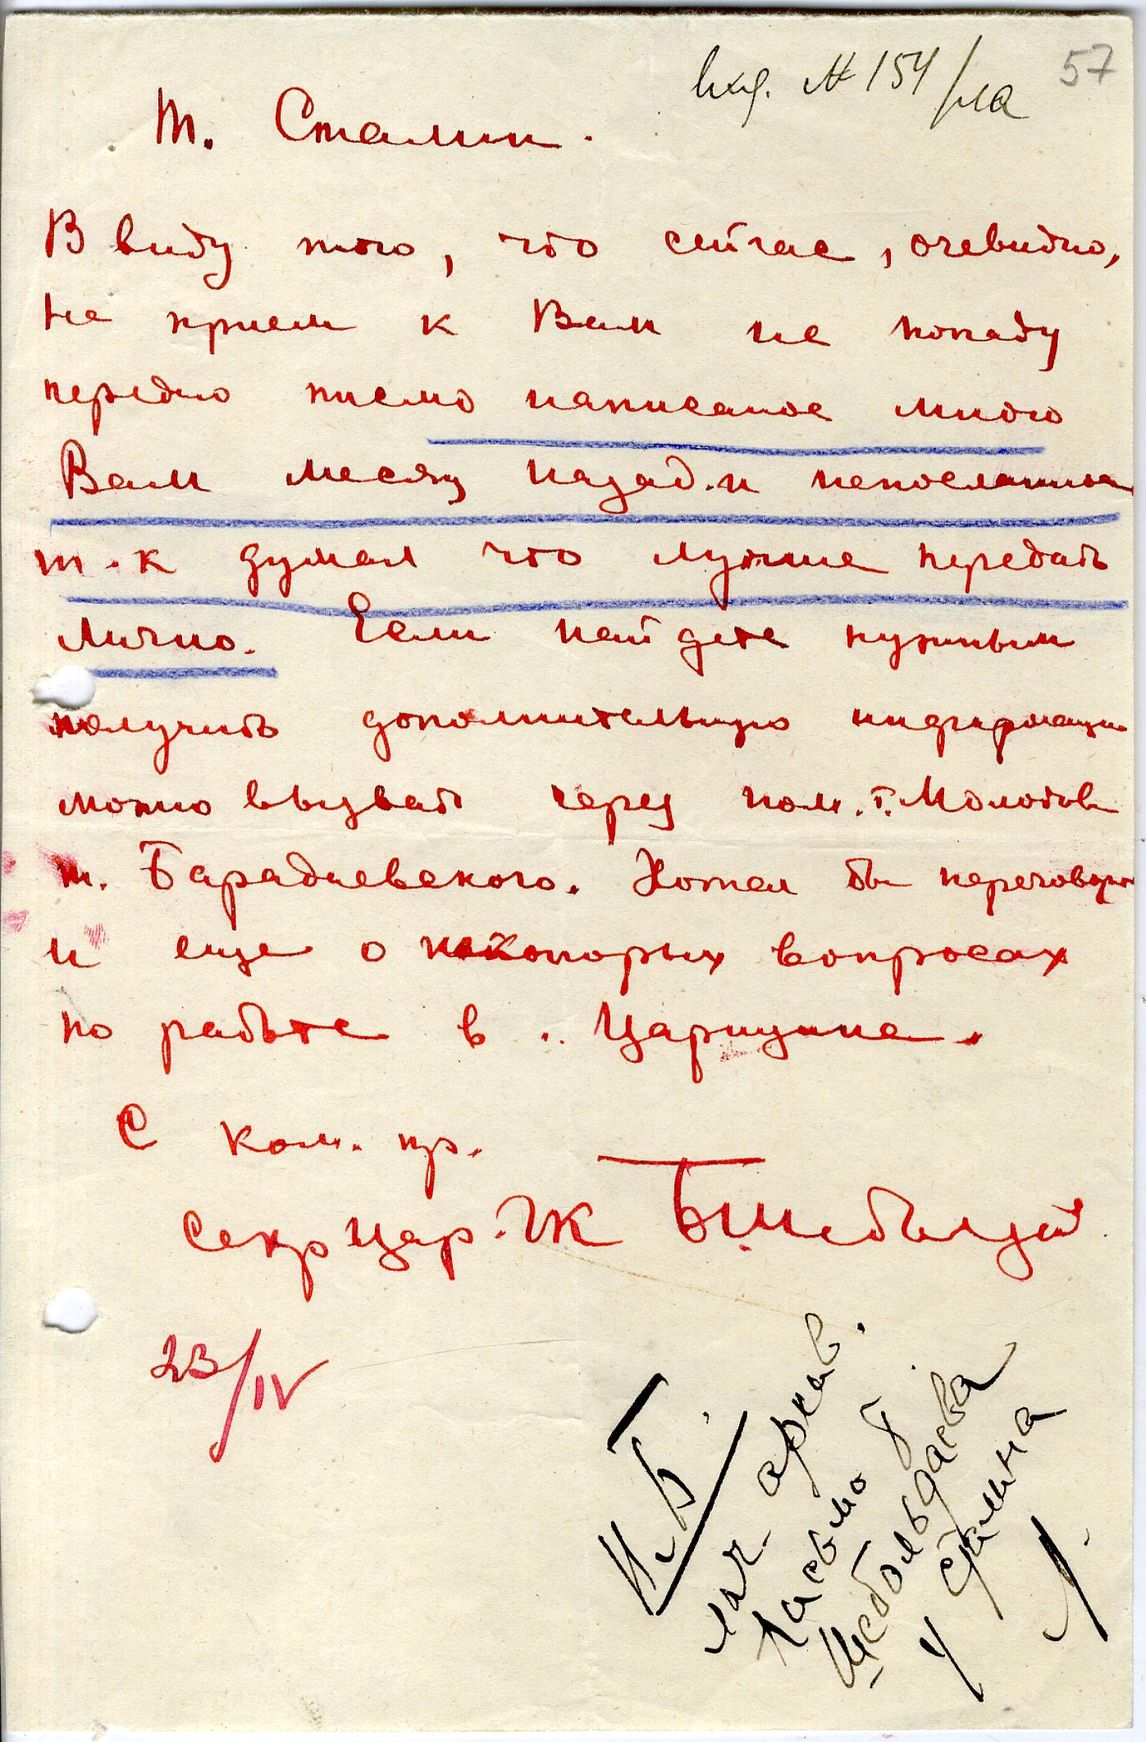 вхд. № 154/па
57
т. Сталин.
В виду того, что сейчас, очевидно,
на прием к Вам не попаду
передаю писмо написаное мною
Вам месяц назад и непосланное
т.к думал что лучше передать
лично. Если найдете нужным
получить дополнительную информацию
можно вызвать через пом. т. Молотов
т. Барадневского. Хотел бы переговорить
и еще о некоторых вопросах
по работе в Царицине.
С ком. пр.
секр Цар. ГК БШеболдаев
23/IV
И.Б.
лич. архив.
Письмо т.
Шеболдаева
у Сталина